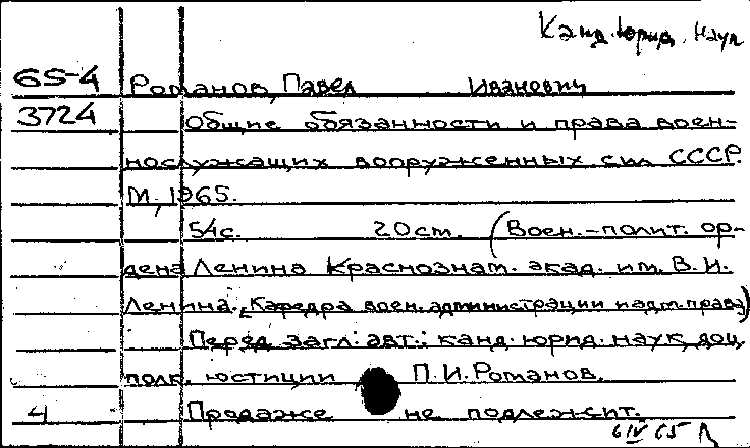 Канд. юрид. наук
65-4 Романов, Павел Иванович
3724 Общие обязанности и права воен-
нослужащих вооруженных сил СССР.
М., 1965.
54с. 20 cm. (Воен.-полит. ор-
дена Ленина Краснознам. акад. им. В. И.
Ленина. Кафедра воен. администрации и адм. права)
Перед загл. авт.: канд. юрид. наук, доц.
полк. юстиции П.И.Романов.
4 Продаже не подлежит.
6 IV 65